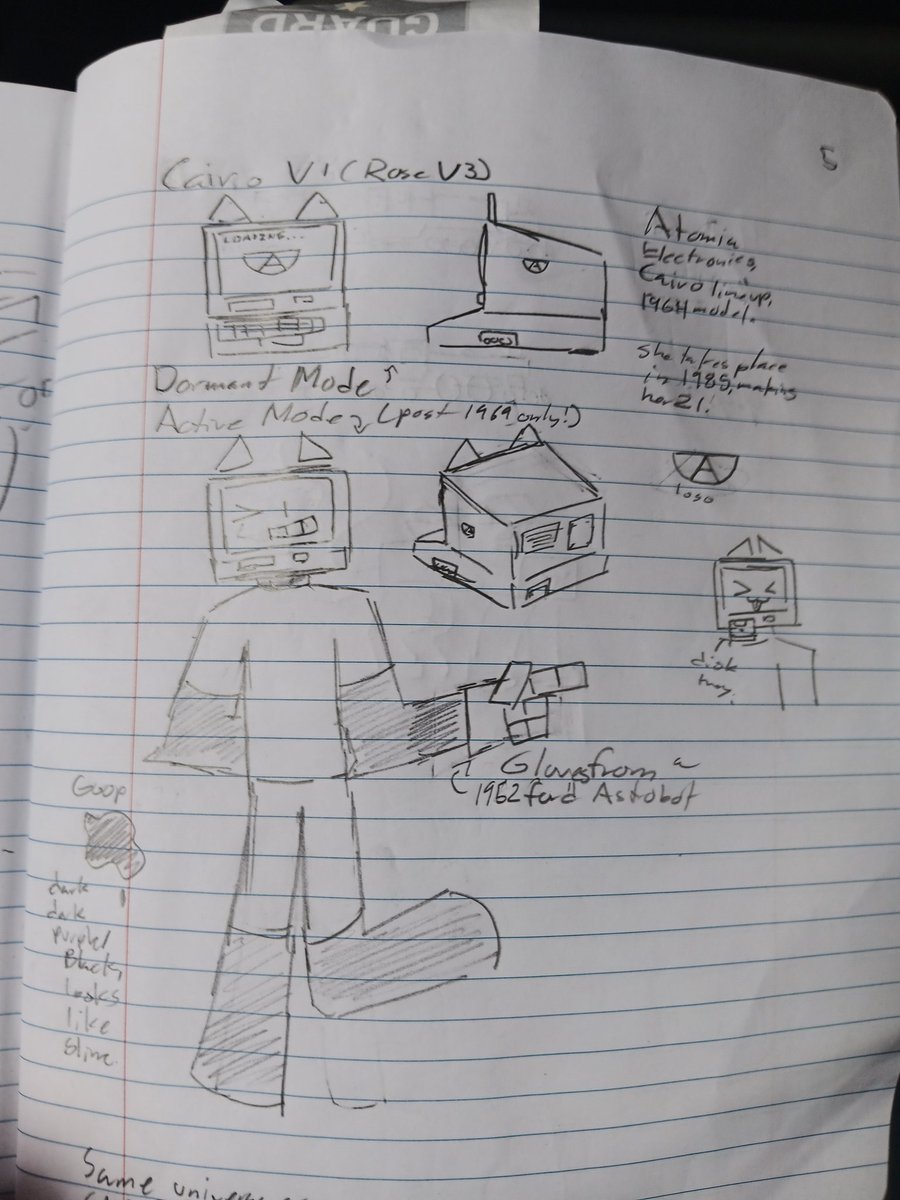 GUARD
5
Cairo V1 (Rose V3)
LOADING...
A
A
Atomia
Electronics,
Cairo lineup,
1964 model.
She takes place
in 1985, making
her 21!
Dormant Mode
Active Mode (post 1969 only!)
A
logo
disk
tray.
Glove from a
1962 ford Astrobot
Goop
dark
dark
purple/
Black,
Looks
like
Slime.
Same